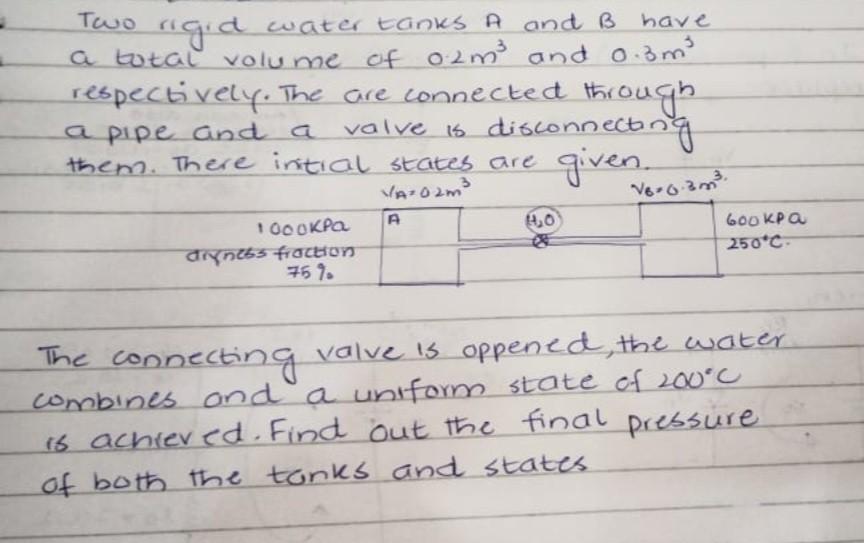 Two rigid water tanks A and B have
a total volume of 0.2m³ and 0.3m³
respectively. The are connected through
a pipe and a valve is disconnecting
them. There intial states are given.
VA=0.2m³
VB=0.3m³.
1000KPa
A
H₂O
600KPa
dryness fraction
250°C.
75%
The connecting valve is oppened, the water
combines and a uniform state of 200°C
is achieved. Find out the final pressure
of both the tanks and states